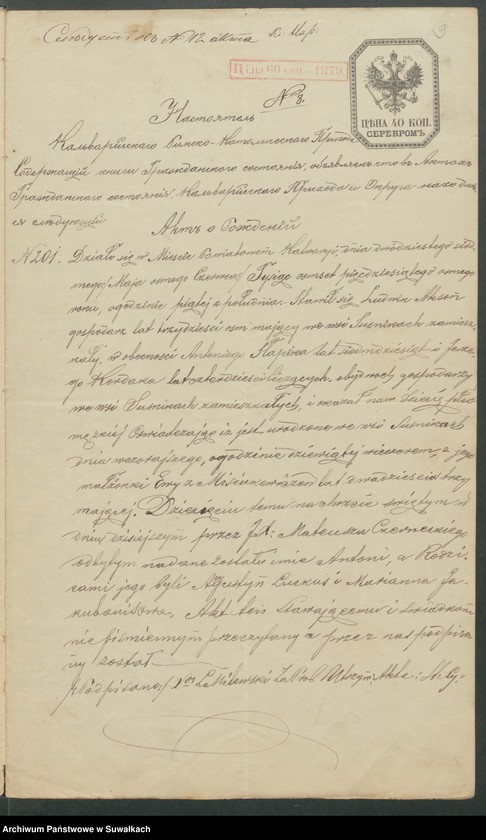 къ № 112 акта К. Мар.
9
Цѣна 60 коп. 1879
ЦѢНА 40 КОП.
СЕРЕБРОМЪ
№ 8.
Настоятель
Кальварійскаго Римско-Католическаго Прихода
Содержащій книги Гражданскаго состоянія, объявляетъ что въ Актахъ
Гражданскаго состоянія Кальварійскаго Прихода и Округа находит-
ся слѣдующій
Актъ о Рожденіи
№ 201. Działo się w Mieście Powiatowem Kalwaryi, dnia dwudziestego siód-
mego/ Maja ósmego Czerwca/ Tysiąc ośmset pięćdziesiątego ósmego
roku, o godzinie piątej z południa. Stawił się Ludwik
gospodarz lat trzydzieści ośm mający we wsi Suśnikach zamiesz-
kały, w obecności Antoniego lat siedmdziesiąt i Jerze-
go lat czterdzieści liczących, obydwóch gospodarzy
we wsi Suśnikach zamieszkałych, i okazał nam Dziecię płci
męzkiej Oświadczając iż jest urodzone we wsi Suśnikach
dnia wczorajszego, o godzinie dziewiątej wieczorem, z jego
małżonki Ewy z lat dwadzieścia trzy
mającej. Dziecięciu temu na chrzcie świętym w
dniu dzisiejszym przez JX: Mateusza Czerneckiego
odbytym nadane zostało imie Antoni, a Rodzi-
cami jego byli Agustyn i Marianna Ja-
kubanisowa, Akt ten Stawającemu i świadkom
niepiśmiennym przeczytany a przez nas podpisa-
ny został
/podpisano/ Utrzym: Akta: St: Cy:
Archiwum Państwowe w Suwałkach